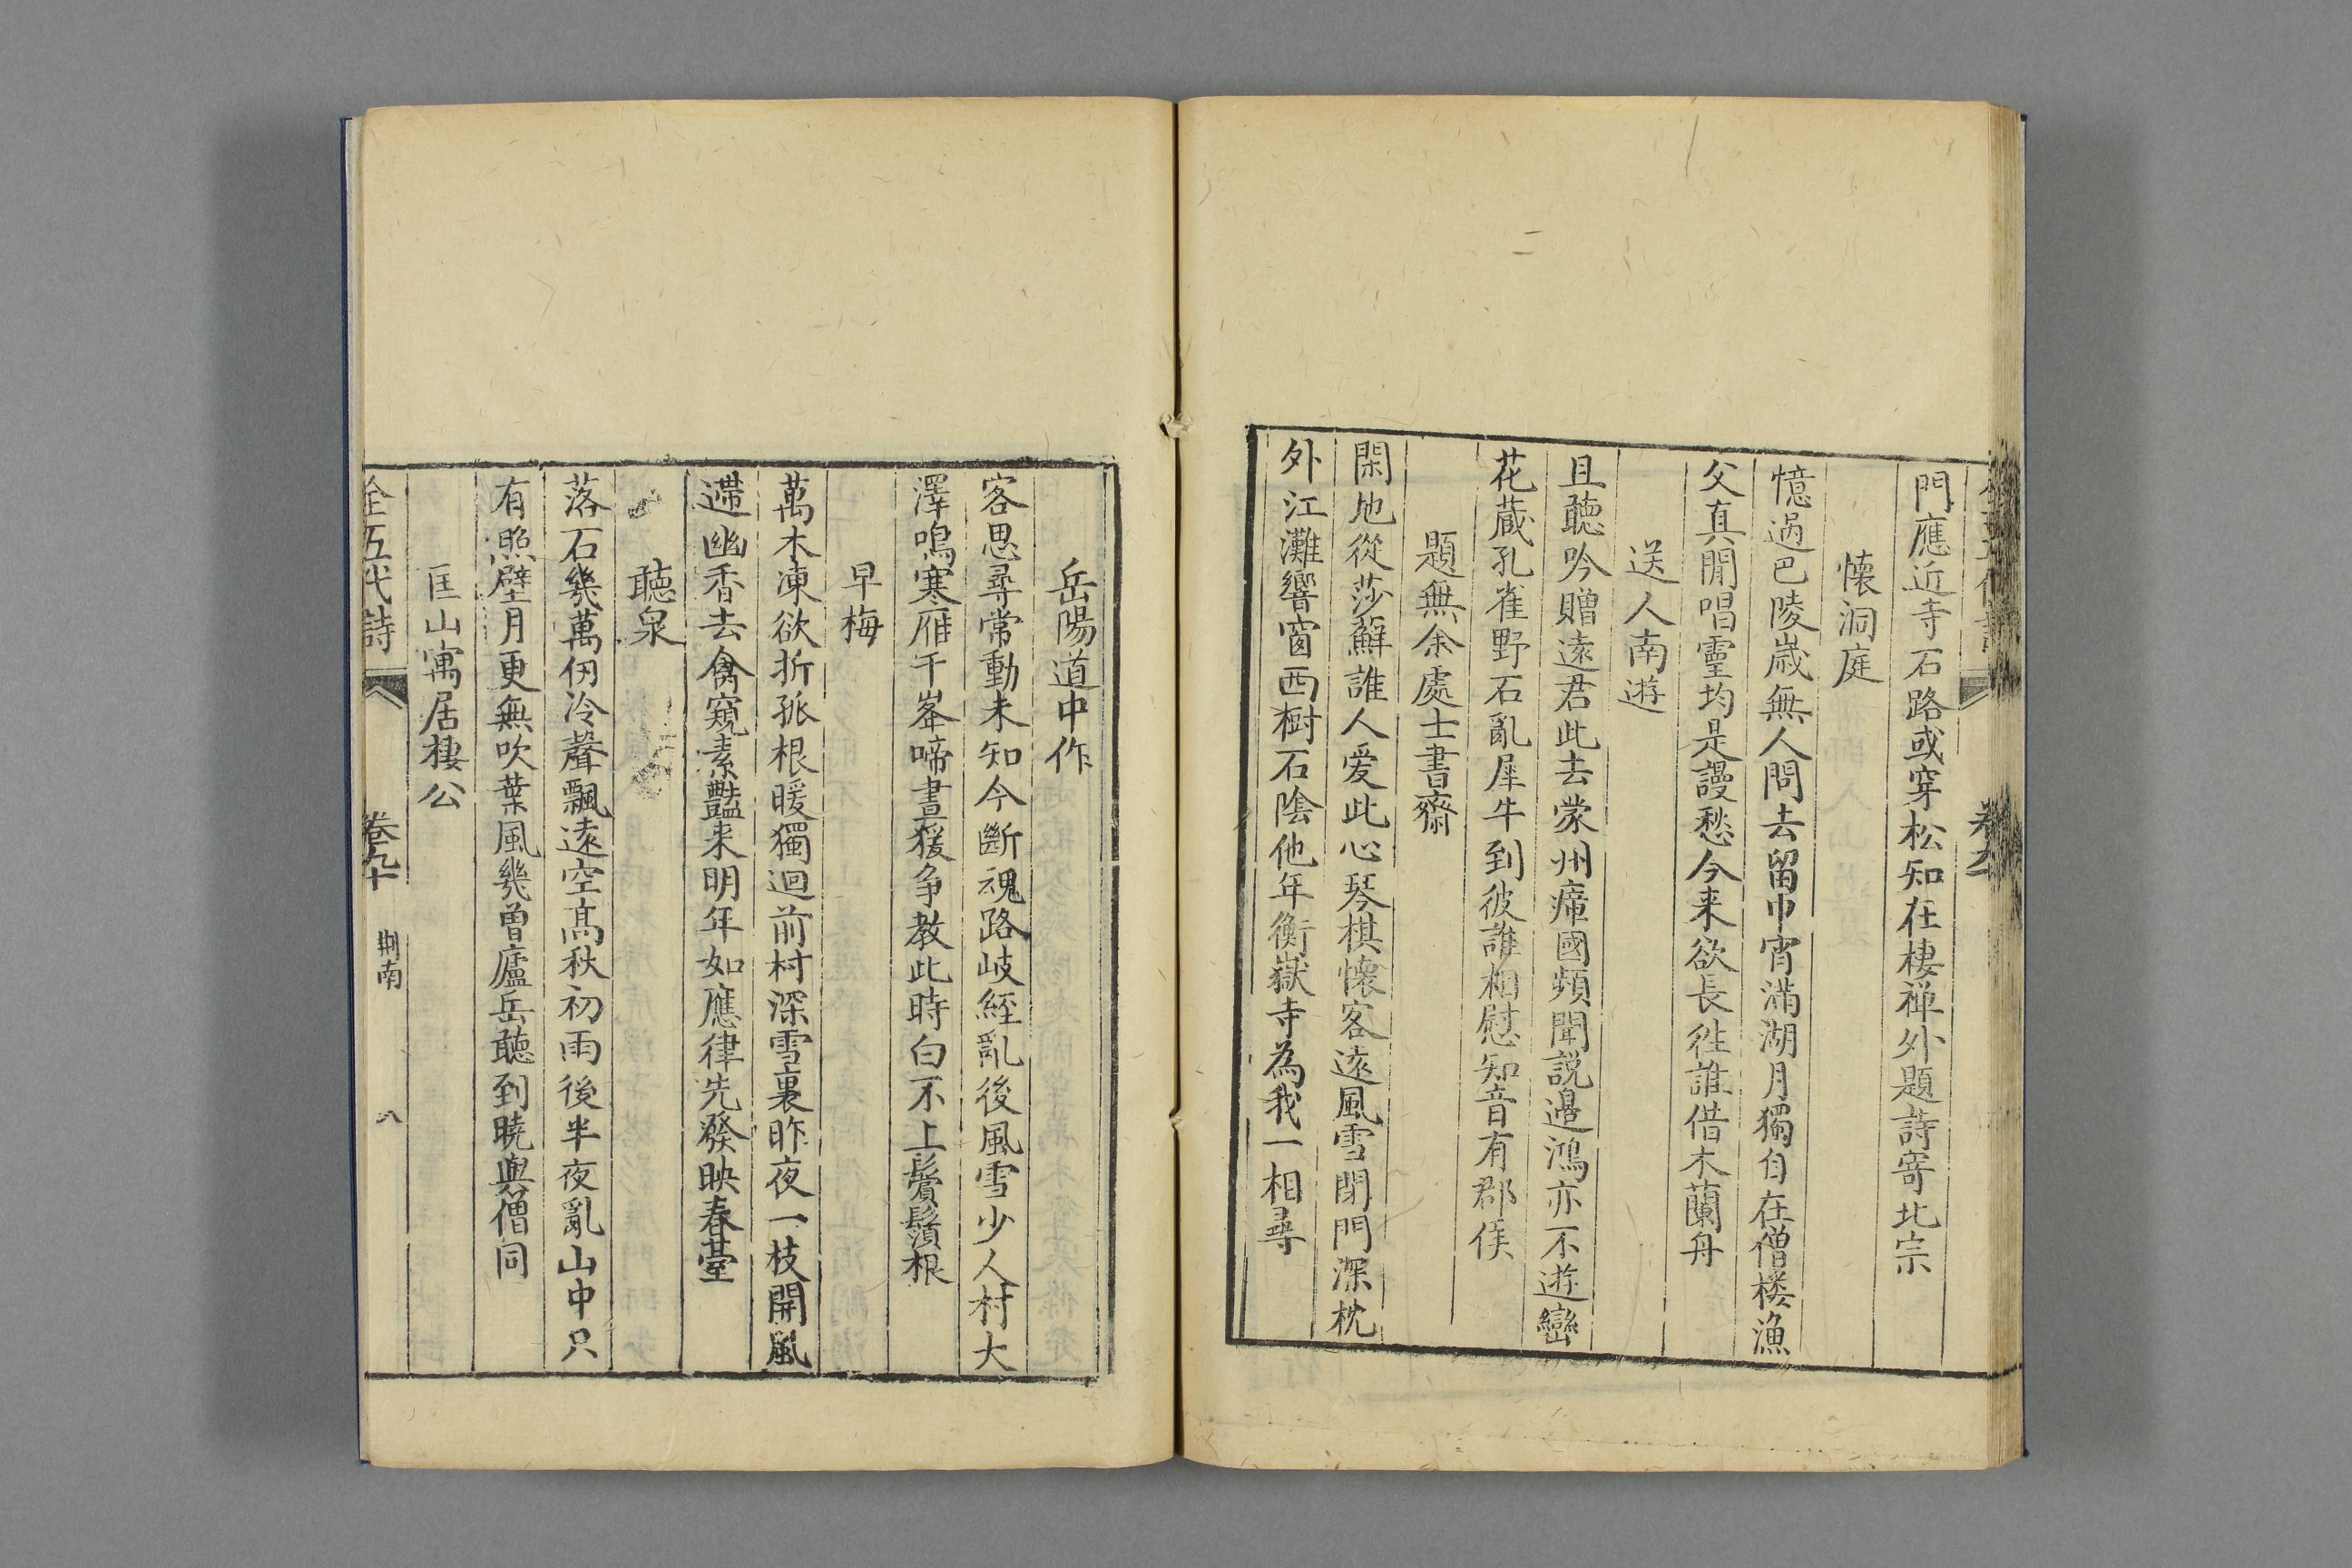 門應近寺石路或穿松知在棲禅外題詩寄北宗
懐洞庭
憶過巴陵嵗無人問去留巾宵滿湖月獨自在僧楼漁
父真閒唱靈均是謾愁今来欲長徃誰借木蘭舟
送人南遊
且聽吟贈遠君此去蒙州瘴國頻聞説邉鴻亦不遊蠻
花蔵孔雀野石亂犀牛到彼誰相慰知音有郡侯
題無余處士書齋
閑地從莎蘚誰人愛此心琴棋懐客遠風雪閉門深枕
外江灘響窗西樹石陰他年衡嶽寺為我一相尋
岳陽道中作
客思尋常動未知今斷魂路岐經亂後風雪少人村大
澤鳴寒雁千峯啼晝猨争教此時白不上鬢鬚根
早梅
萬木凍欲折孤根暖獨迴前村深雪裏昨夜一枝開風
遞幽香去禽窺素豔来明年如應律先發映春䑓
聽泉
落石幾萬仞冷聲飄遠空高秋初雨後半夜亂山中只
有照壁月更無吹葉風幾曾廬岳聽到曉與僧同
匡山寓居棲公
全五代詩 卷九十 荆南 八